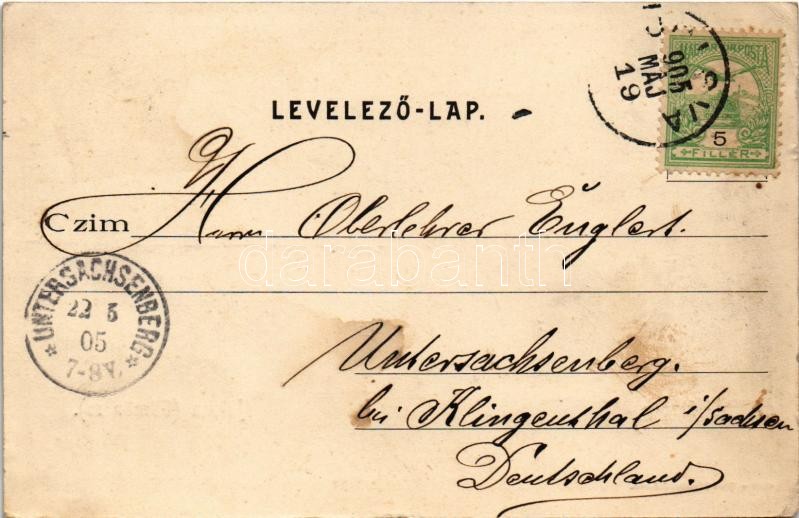 905
MÁJ
19
MAGYAR KIR. POSTA
5
FILLÉR
LEVELEZŐ-LAP.
Czim Herrn Oberlehrer Englert.
UNTERSACHSENBERG
22 5
05
7-8V.
darabanth
Untersachsenberg.
bei Klingenthal i/Sachsen
Deutschland.